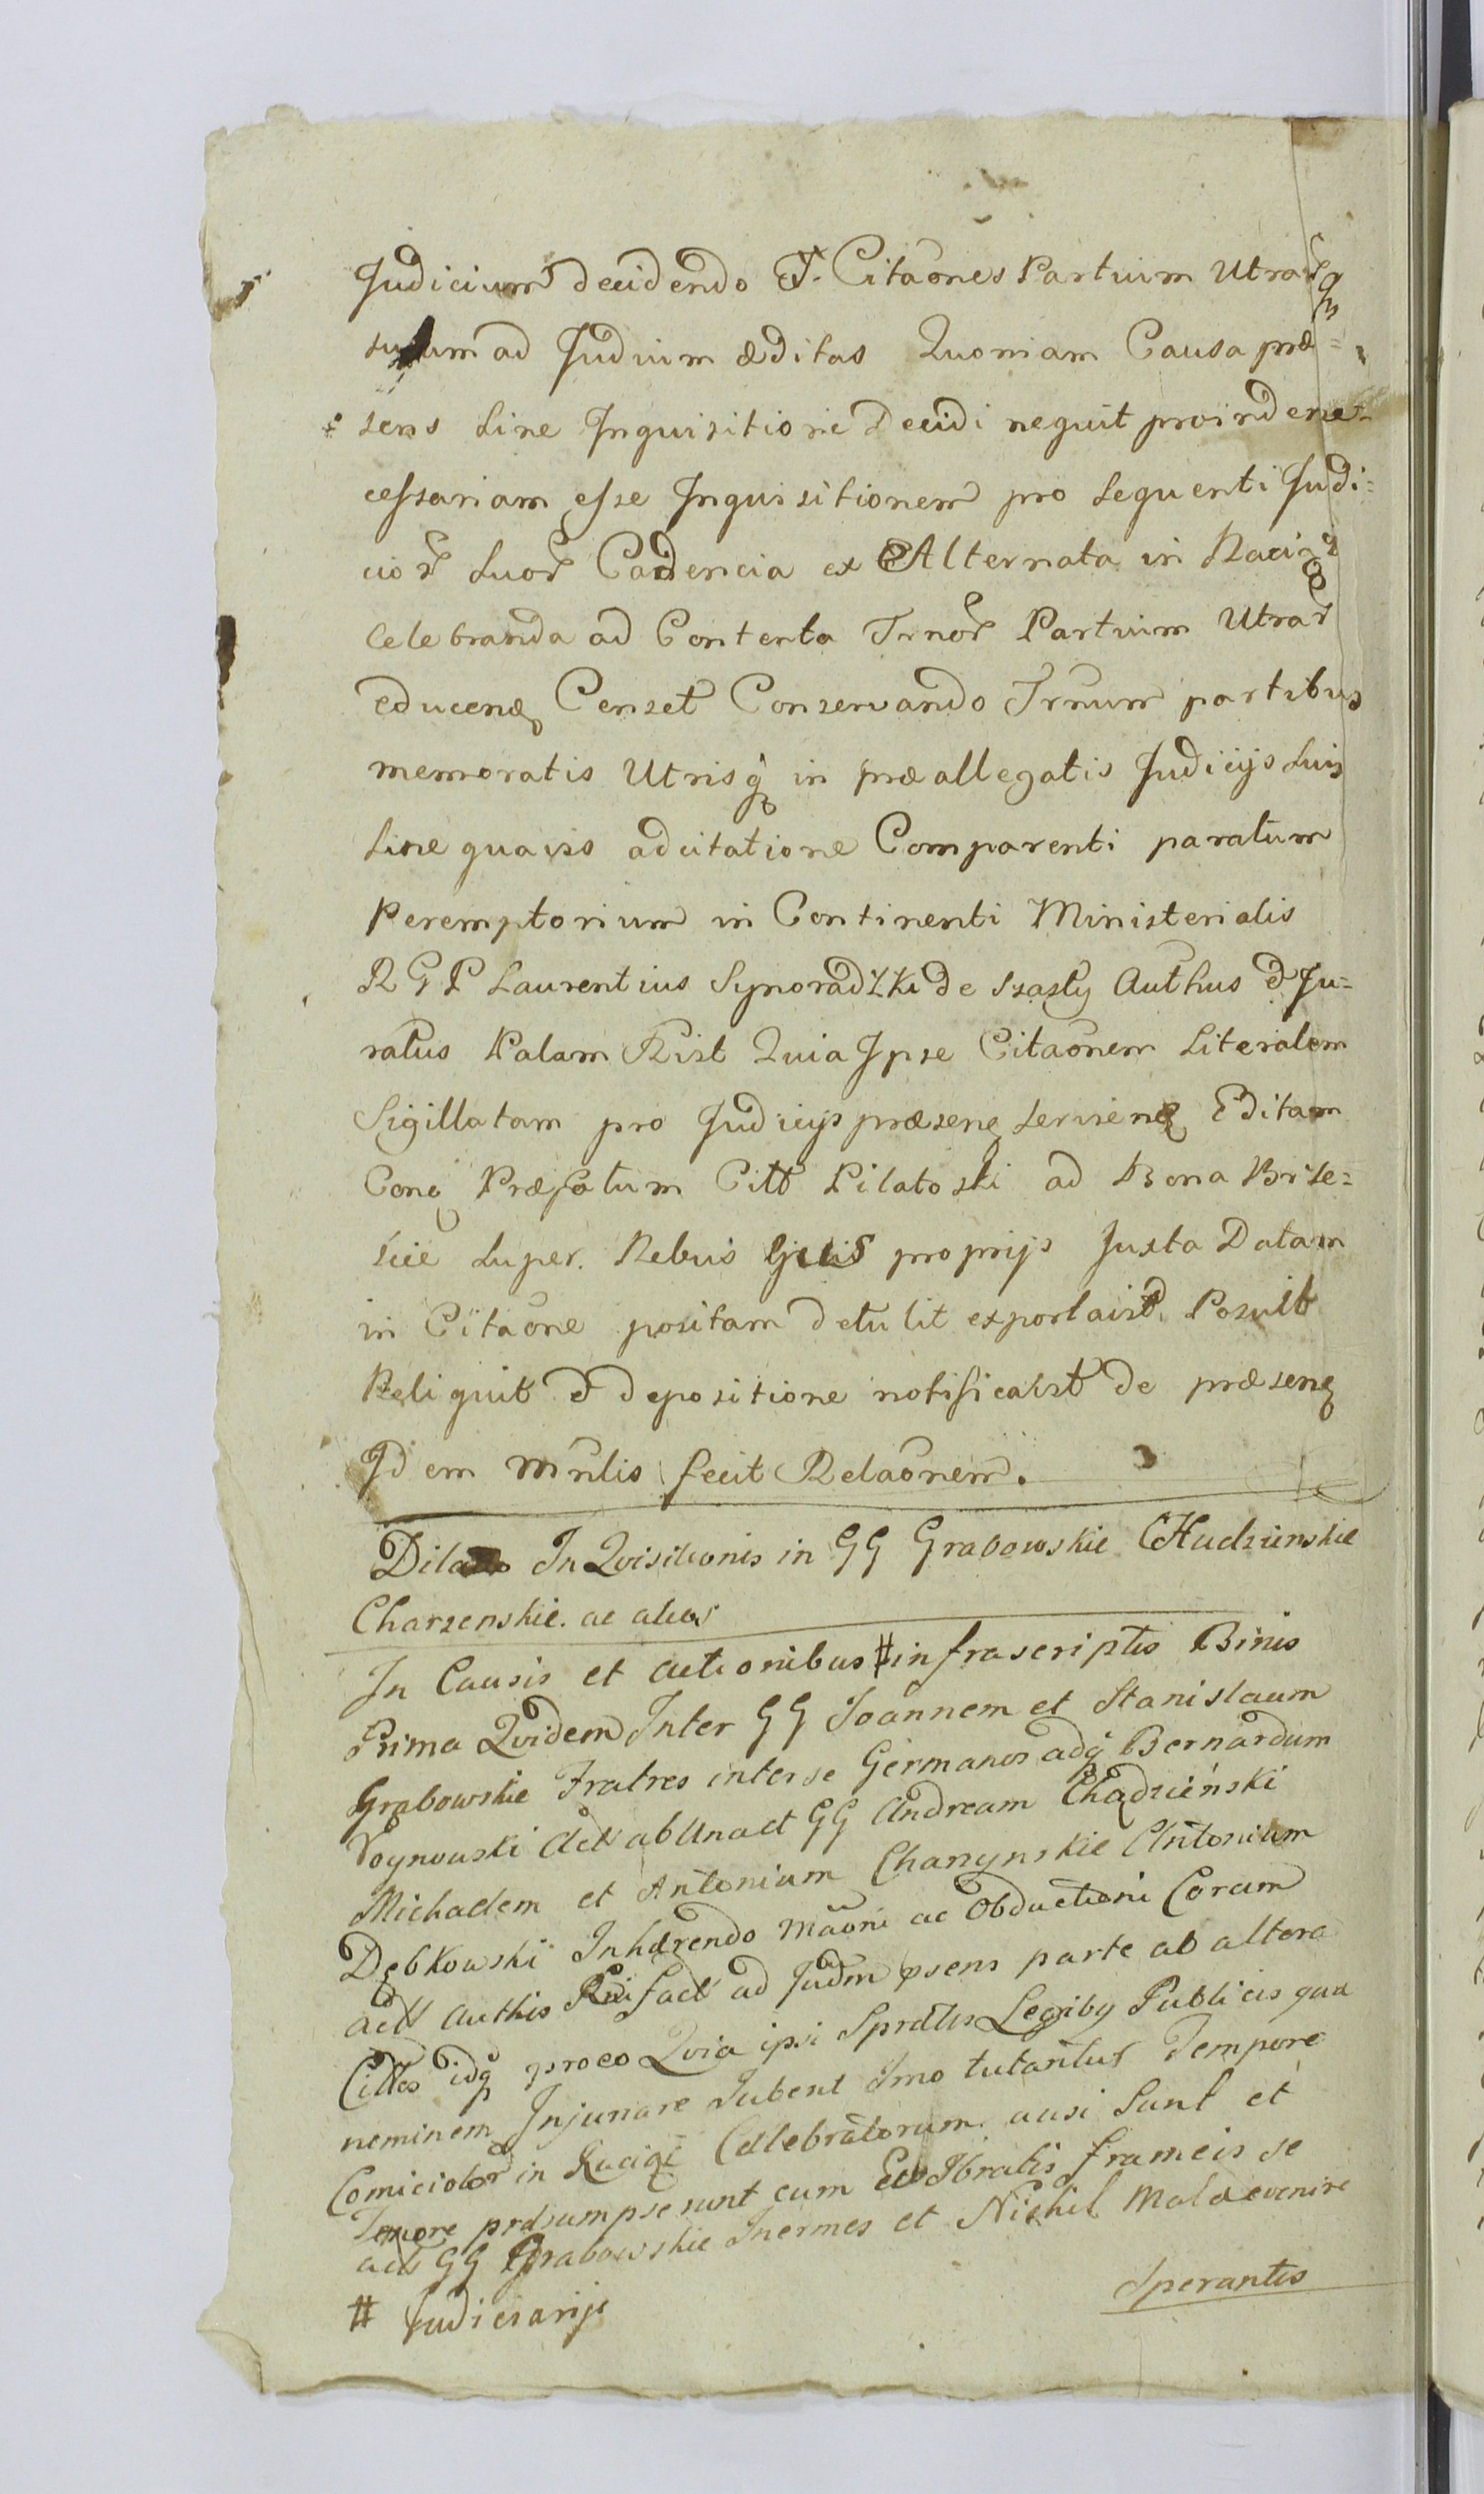 Judicium decidendo T. Citãones Partium Utrarq
suum ad Judium æditas Quoniam Causa præ=
sens Sine Inquisitione Decidi nequit proinde ne=
cessariam esse Inquisitionem pro Sequenti Judi=
cior Suor Cadencia ex Alternata in Raciąz
Celebranda ad Contenta Trnor Partium Utrar
educenq Censet Conservando Trnum partibus
memoratis Utrisq in præallegatis Judicijs Suis
Sine quavis adcitatione Comparenti paratum
Peremptorium in Continenti Ministerialis
R G P Laurentius Synoradzki de Szasty Authus et Ju=
ratus Palam Rist Quia Ipse Citaõnem Literalem
Sigillatam pro Judicijs præsenq servienq Editam
Conq Præfatum Citt Pilatoski ad Bona Brze=
scie super. Rebus proprijs Juxta Datam
in Citaõne positam detulit exportavit Posuit
Reliquit et depositione notificavit de præsenq
Idem Mnlis fecit Relaõnem.
InQvisitionis in GG Grabowskie CHudzienskie
Charzenskie. ac alios
In Causis et Actionibus # infrascriptis Binis
Prima Qvidem Inter GG Joannem et Stanislaum
Grabowskie Fratres inter se Germanos adq Bernardum
Voynowski Act ab Una et GG Andream Chądzieński
Michaelem et Antonium Charzynskie Antonium
Dębkowski Inhærendo Mãoni ac Obductioni Coram
act Authis fact ad Judm psens parte ab altera
Cittos idq proeo Qvia ipsi Spretis Legiby Publicis quæ
neminem Injuriare Jubent Imo tutantur Tempore
Comiciolor in Raciąż Celebratorum ausi Sunt et
præsumpserunt cum frameis se
GG Grabowskie Inermes et Nichil Mala evenire
Sperantes
# Judiciarijs